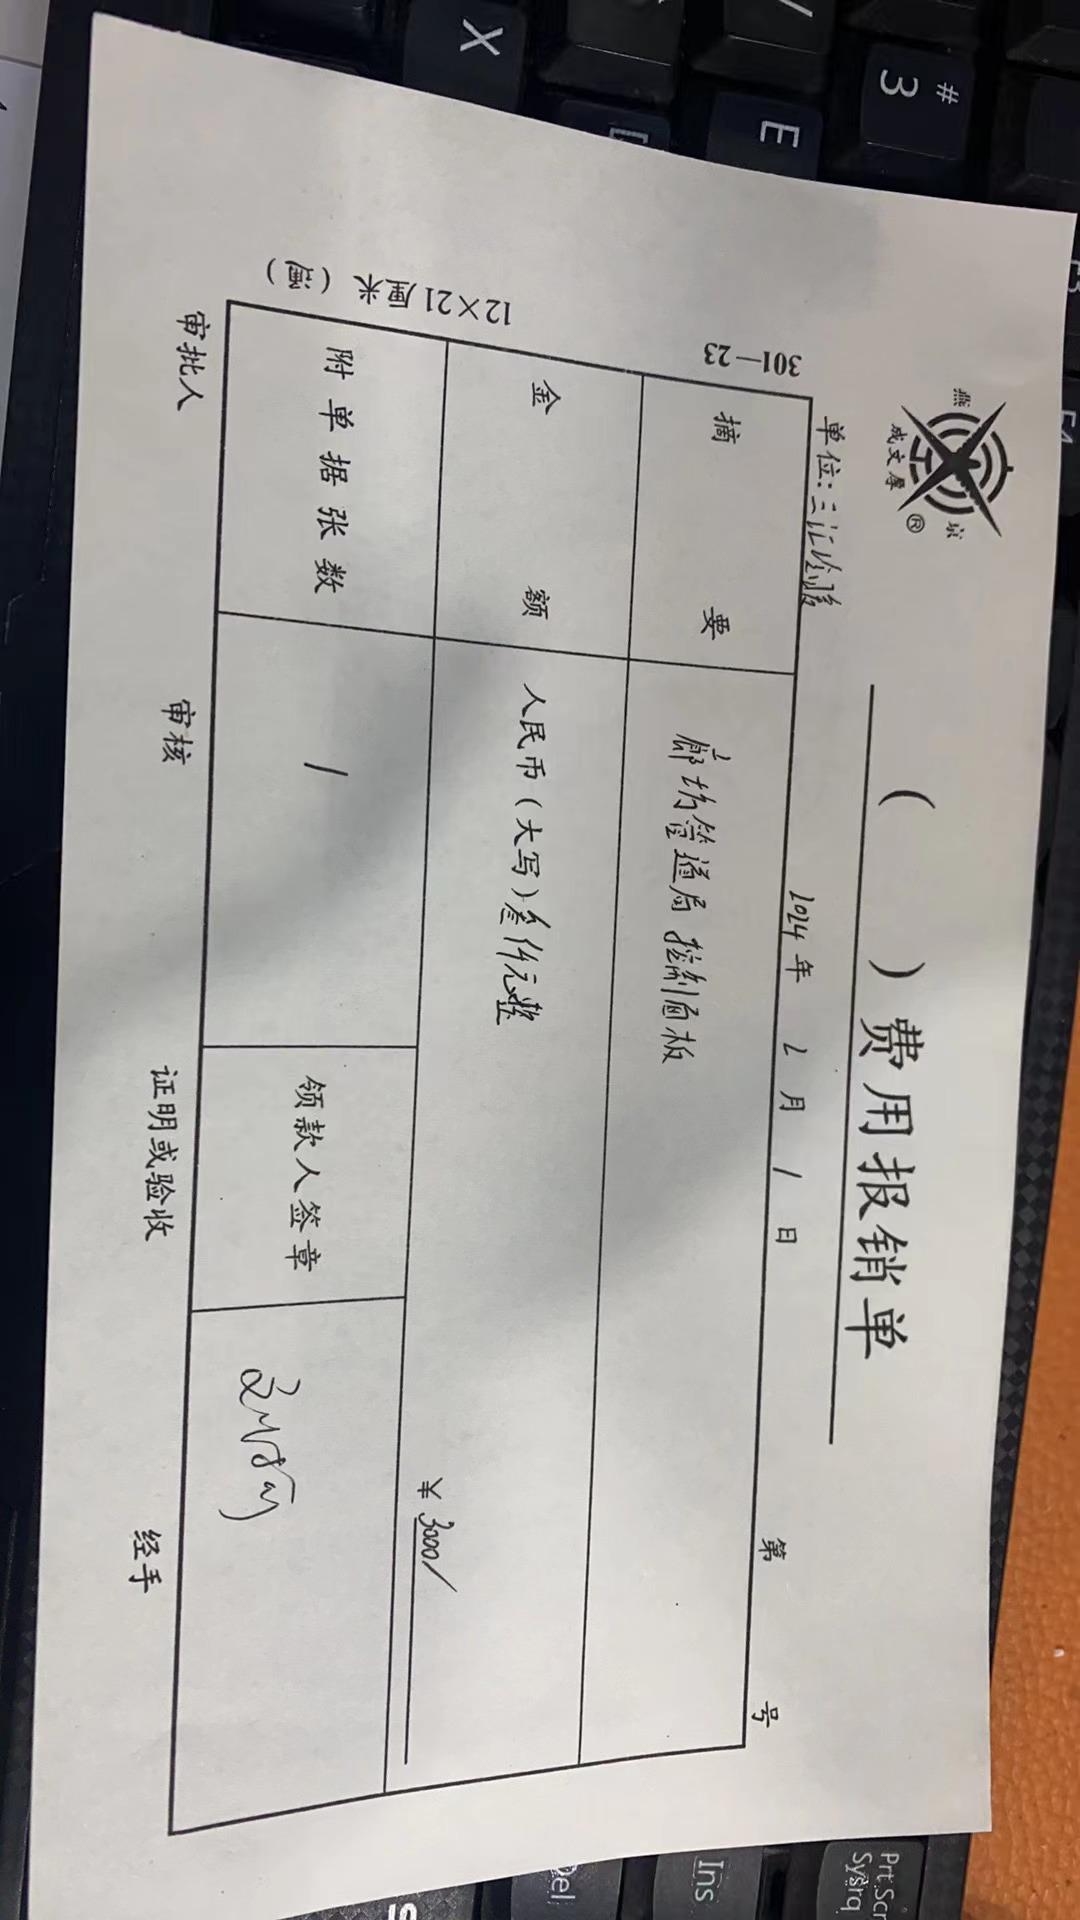 燕京
成文厚®
( )费用报销单
单位:三汇
2024年 2月 1日
第 号
301—23
摘要 廊坊管道局 控制面板
金额 人民币(大写)叁仟元整
¥ 3000/
12×21厘米(薄)
附单据张数 1 领款人签章
审批人 审核 证明或验收 经手
# 3
E
X
F3
F4
Prt Scr
Sysrq
Ins
Del